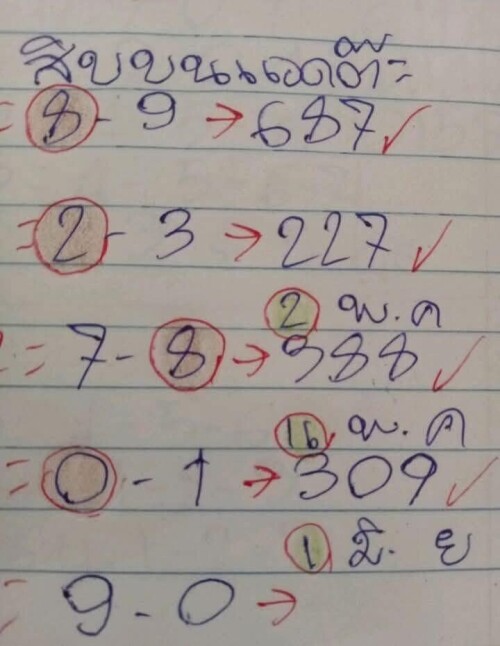 สิบบนแอดติ๊ะ
= 8 - 9 → 687 ✓
= 2 - 3 → 227 ✓
2 พ.ค
= 7 - 8 → 988 ✓
16 พ.ค
= 0 - 1 → 309 ✓
1 มิ.ย
= 9 - 0 →